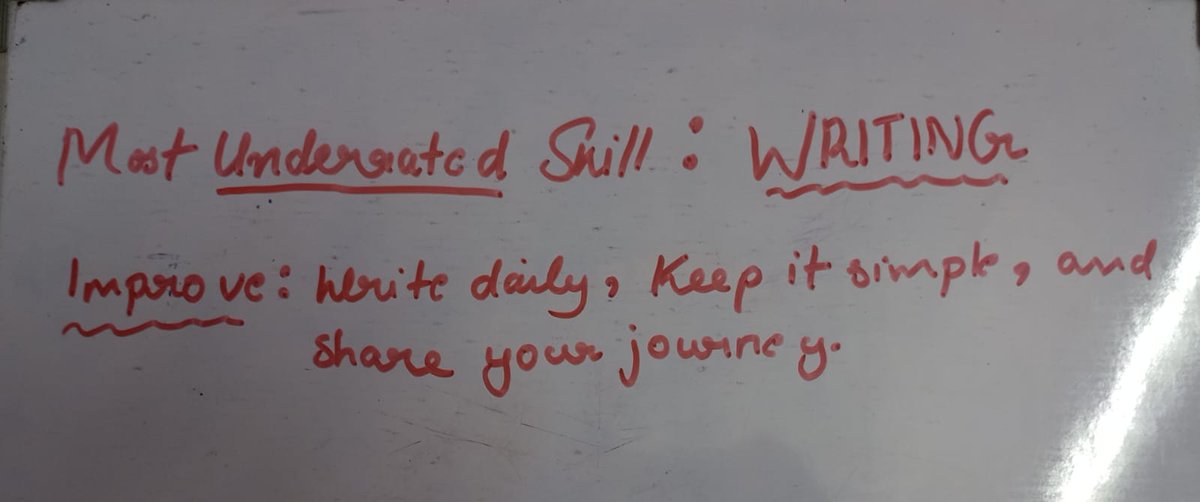 Most Underrated Skill: WRITING
Improve: Write daily, Keep it simple, and
share your journey.